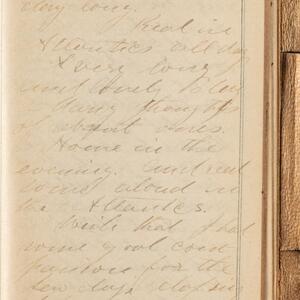 day long.
Read in
Atlantic all day
& very long &
and lonely. Had
many thoughts
of absent ones.
Home in the
evening. and read
some aloud in
the Atlantic.
Wish that I had
some good com
panion for the
few days